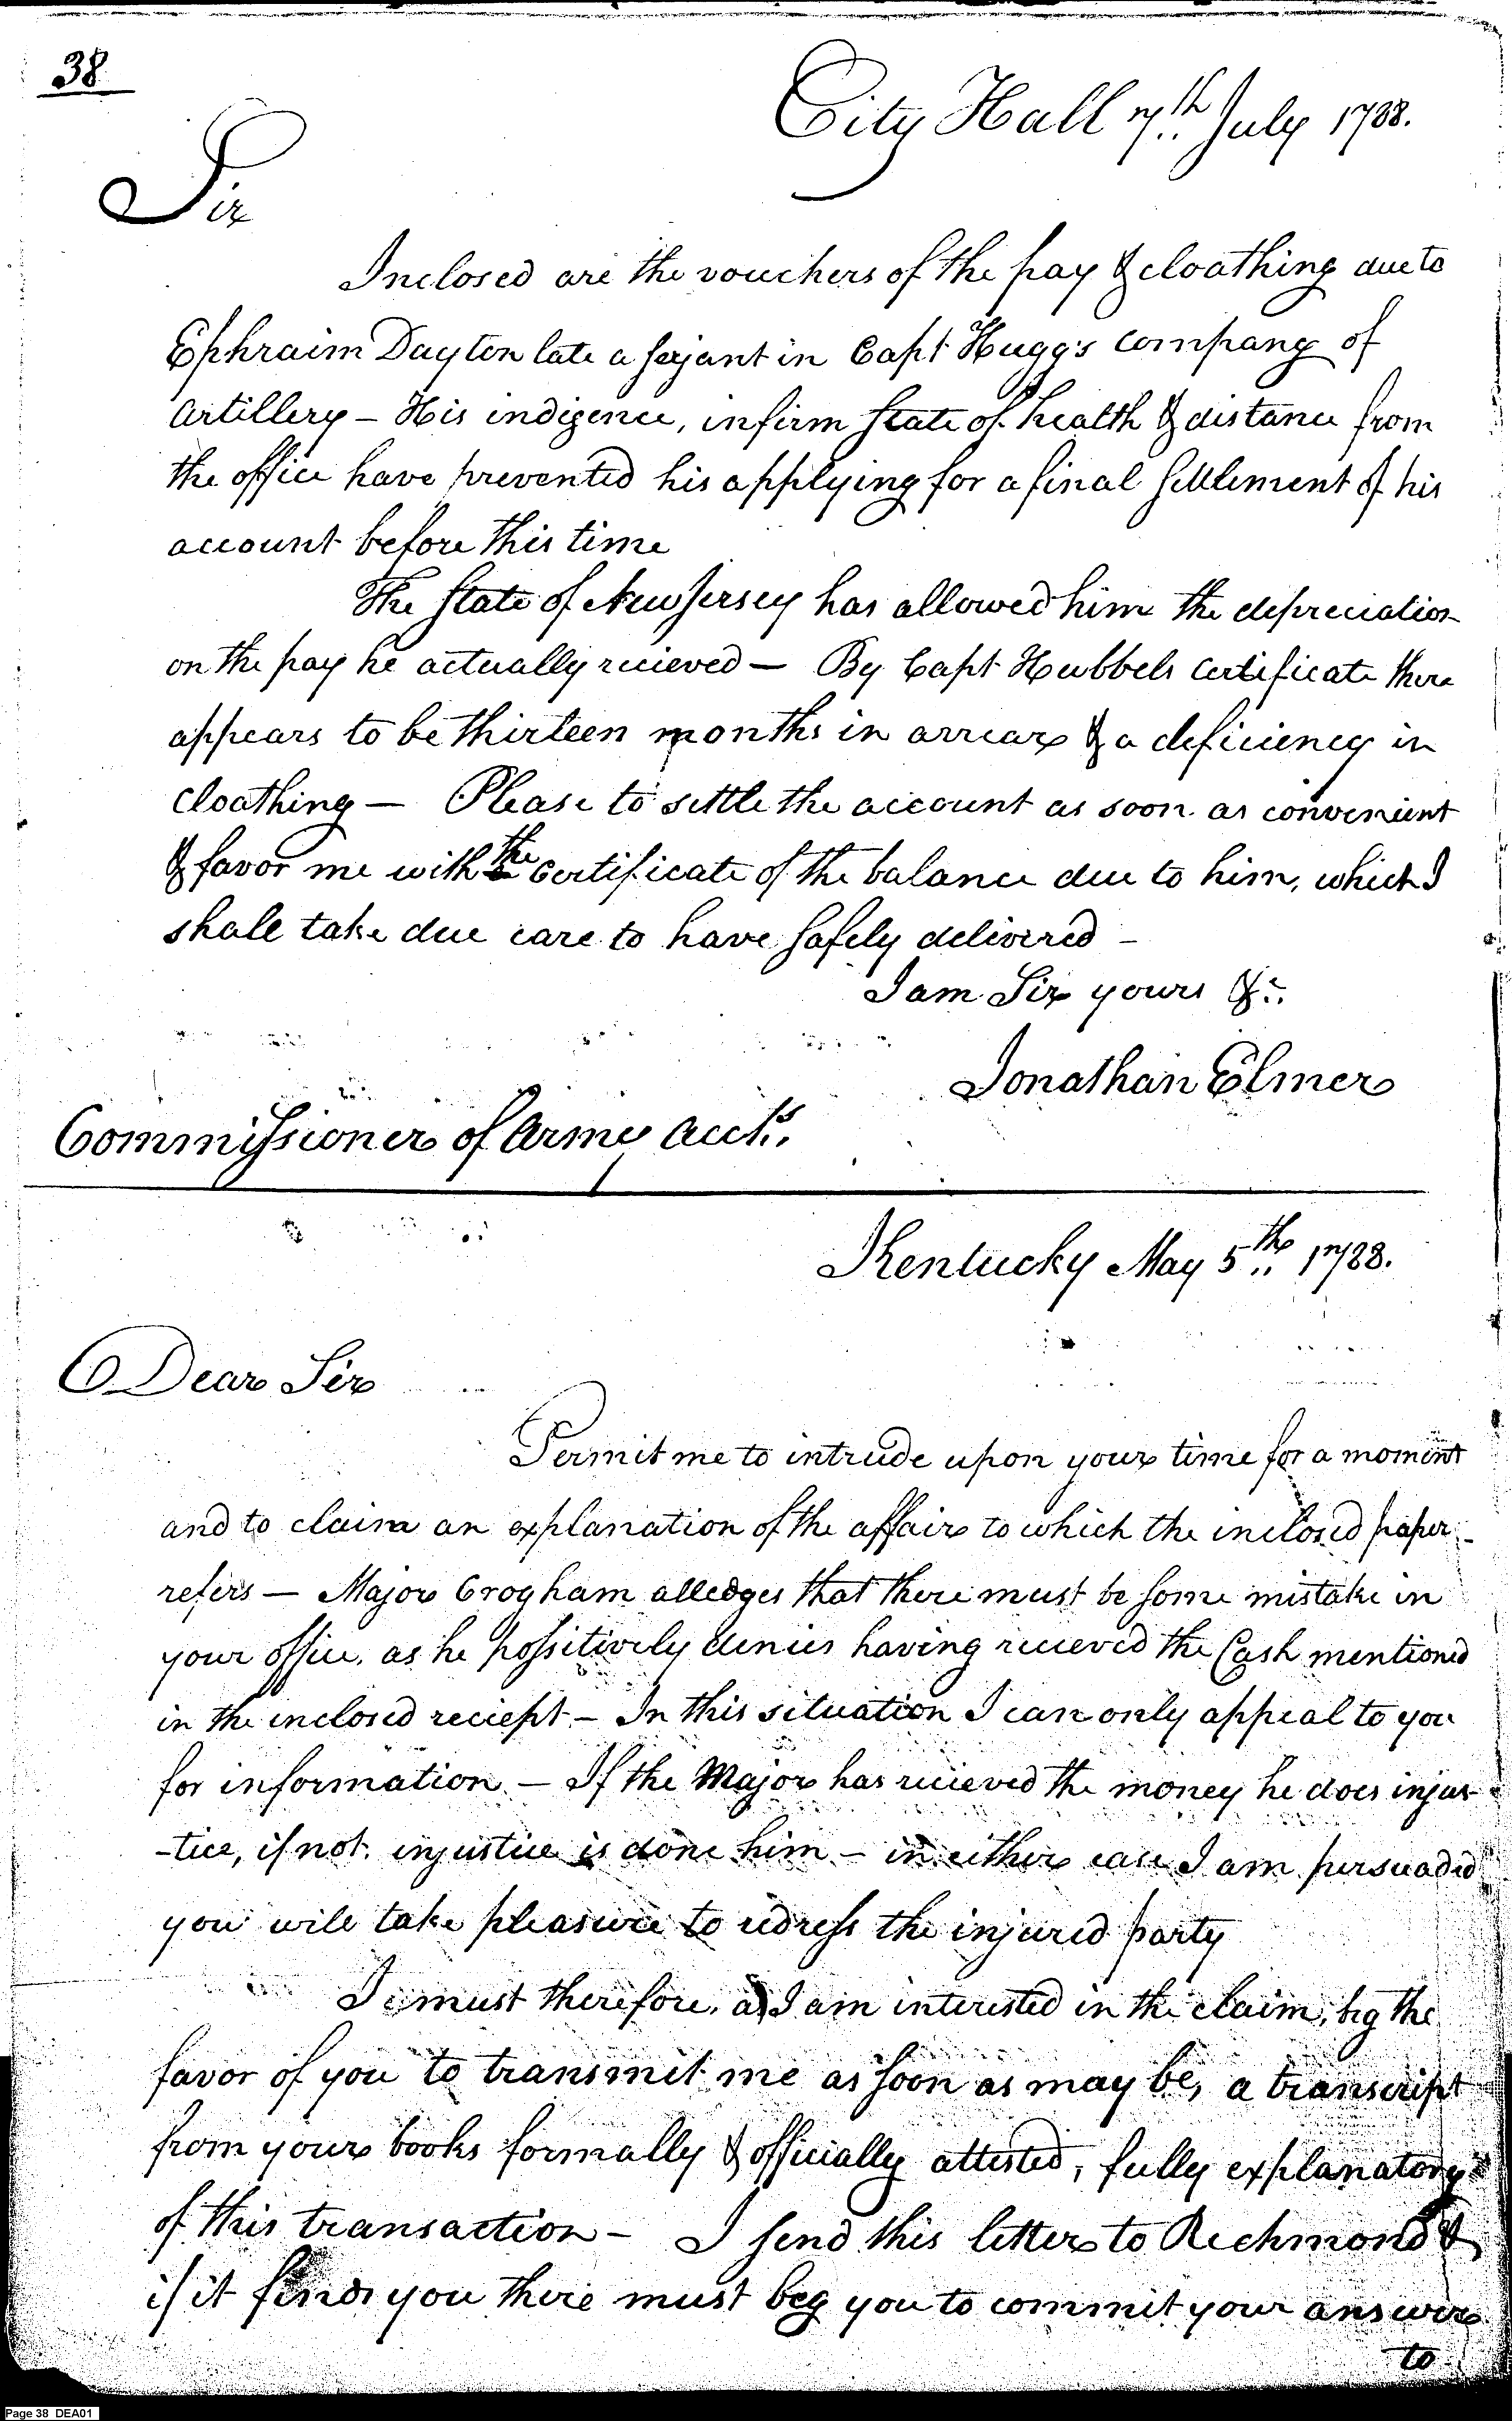 38
City Hall 7th July 1788.
Sir
Inclosed are the vouchers of the pay & cloathing due to
Ephraim Dayton late a serjant in Capt Hugg's company of
artillery - His indigence, infirm state of health & distance from
the office have prevented his applying for a final settlement of his
account before this time
The State of New Jersey has allowed him the depreciation
on the pay he actually recieved - By Capt Hubbels certificate there
appears to be thirteen months in arrear & a deficiency in
cloathing - Please to settle the account as soon as convenient
& favor me with the certificate of the balance due to him, which I
shall take due care to have safely delivered -
I am Sir yours &c.
Jonathan Elmer
Commissioner of army accts.
Kentucky May 5th 1788.
Dear Sir
Permit me to intrude upon your time for a moment
and to claim an explanation of the affair to which the inclosed paper
refers - Major Crogham alledges that there must be some mistake in
your office, as he possitively denies having recieved the Cash mentioned
in the inclosed reciept - In this situation I can only appeal to you
for information - If the Major has recieved the money he does injus-
-tice, if not, injustice is done him - in either case I am persuaded
you will take pleasure to redress the injured party
I must therefore, as I am interested in the claim, beg the
favor of you to transmit me as soon as may be, a transcript
from your books formally & officially attested, fully explanatory
of this transaction - I send this letter to Richmond &
if it finds you there must beg you to commit your answer
to
Page 38 DEA01